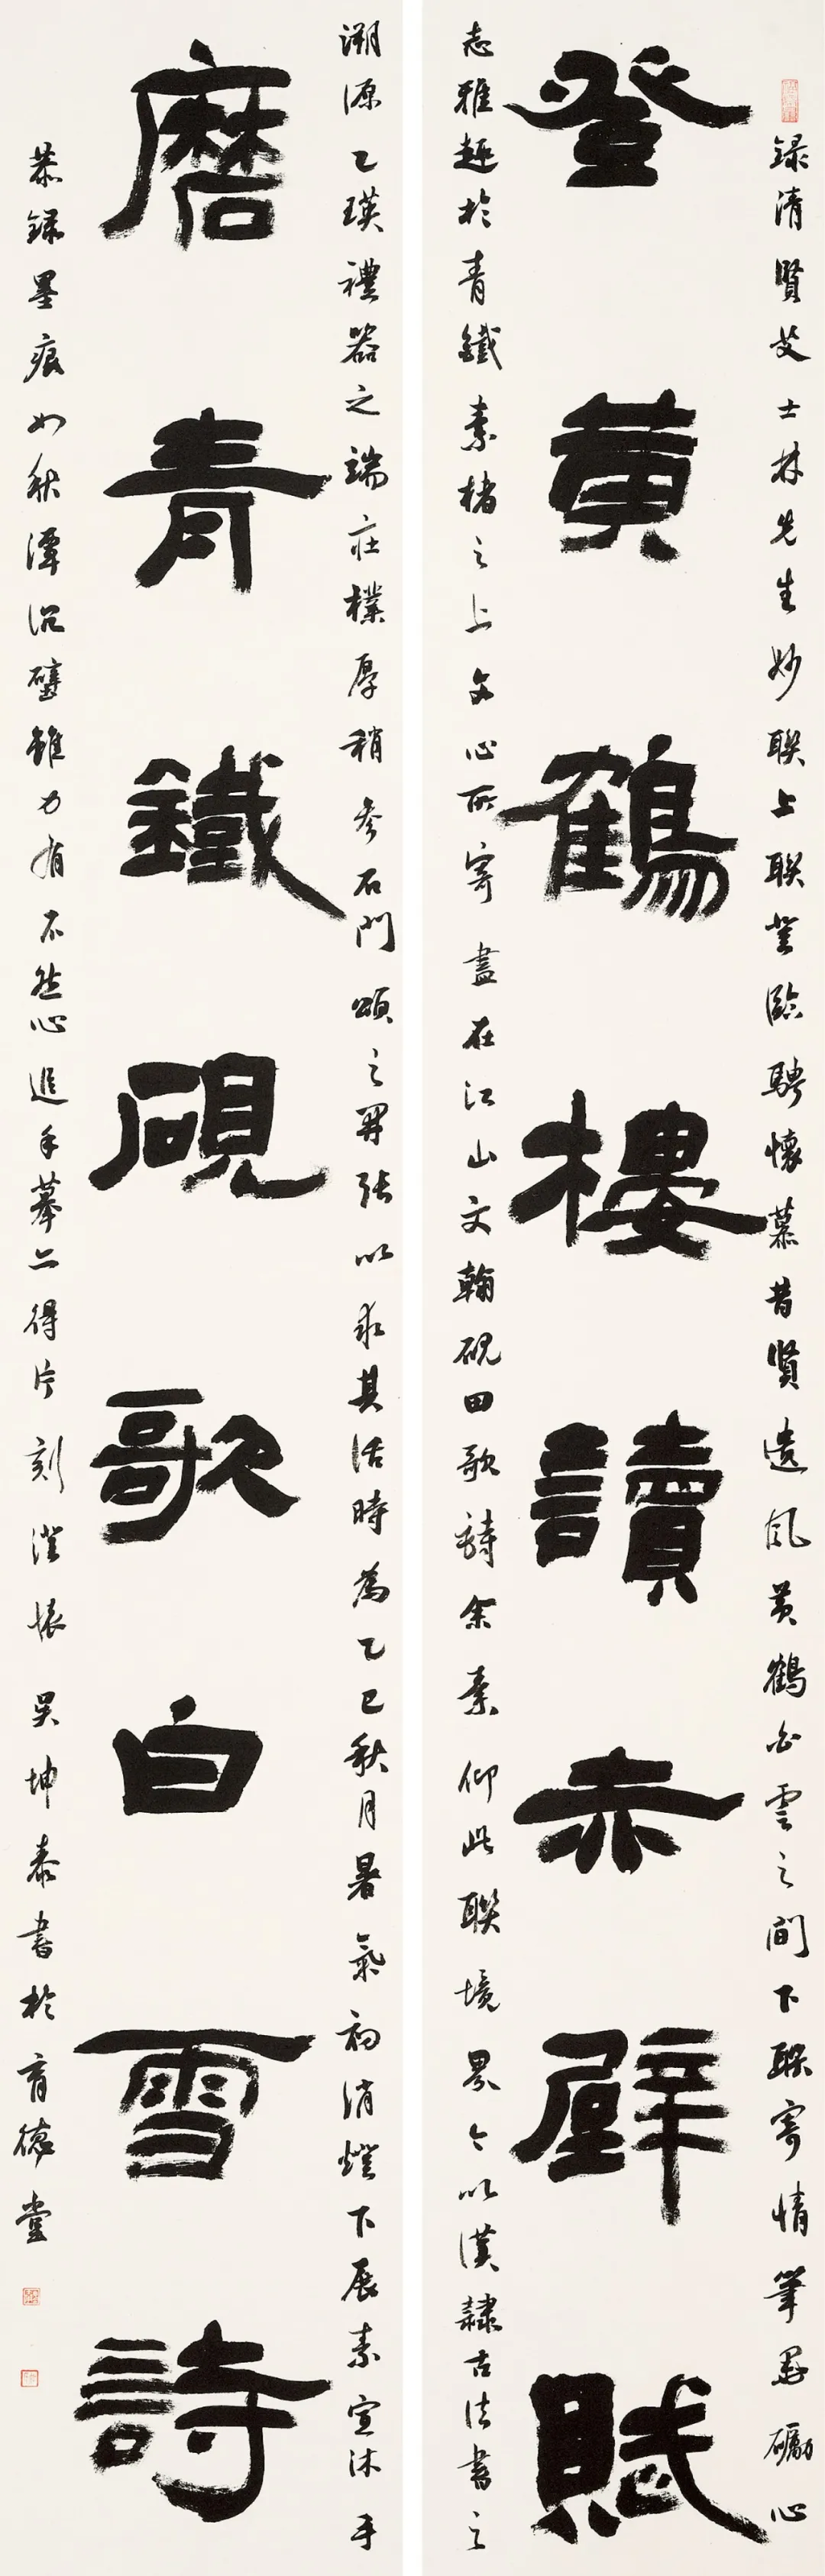 錄清賢艾士林先生妙聯上聯登臨騁懷慕昔賢遺風黃鶴白雲之間下聯寄情筆墨礪心
登黃鶴樓讀赤壁賦
志雅趣於青鐵素楮之上文心所寄盡在江山文翰硯田歌詩余素仰此聯境界今以漢隸古法書之
溯源乙瑛禮器之端莊樸厚稍參石門頌之開張以求其活時為乙巳秋月暑氣初消燈下展素宣沐手
磨青鐵硯歌白雪詩
恭錄墨痕如秋潭沉璧雖力有不然心追手摹亦得片刻澄懷 吳坤泰書於育德堂